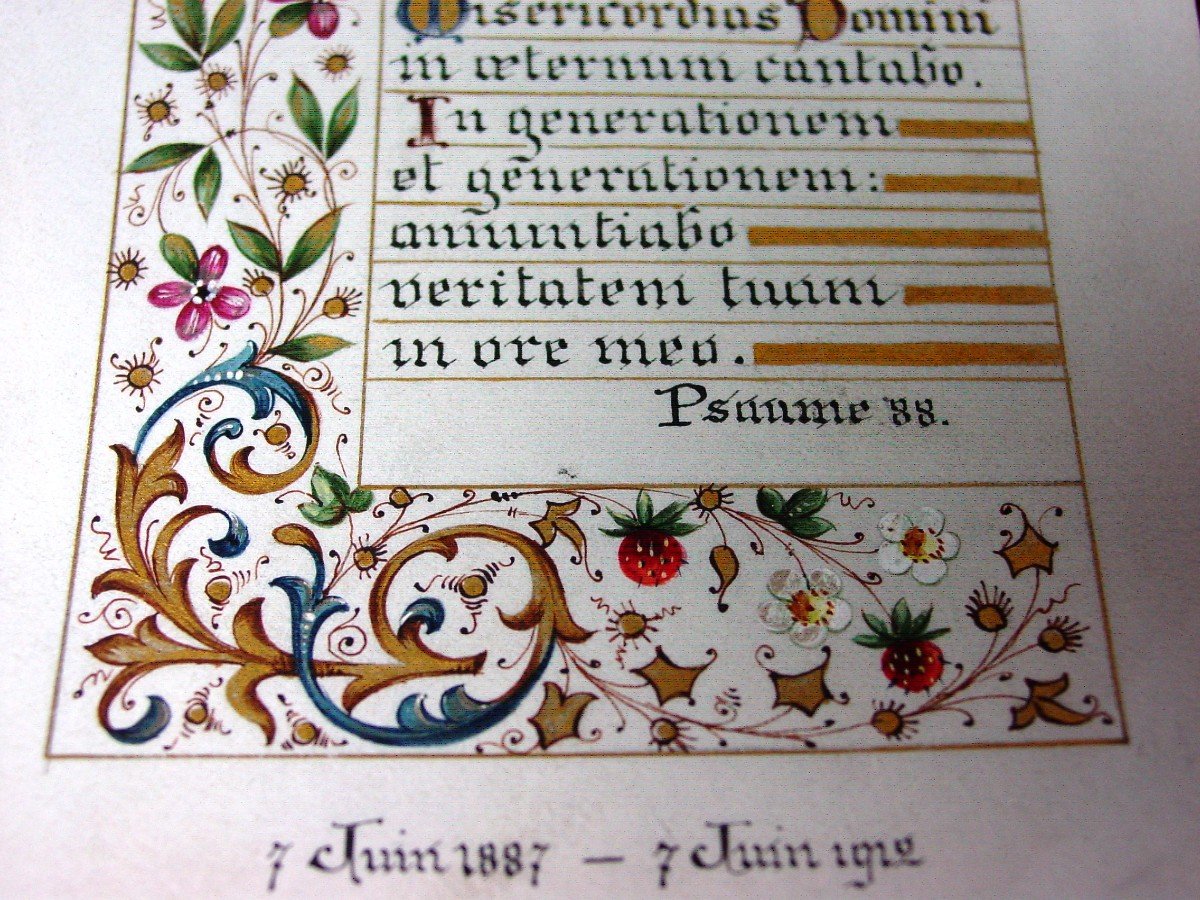 Misericordias Domini
in æternum cantabo.
In generationem
et generationem:
annuntiabo
veritatem tuam
in ore meo.
Psaume 88.
7 Juin 1887 — 7 Juin 1912